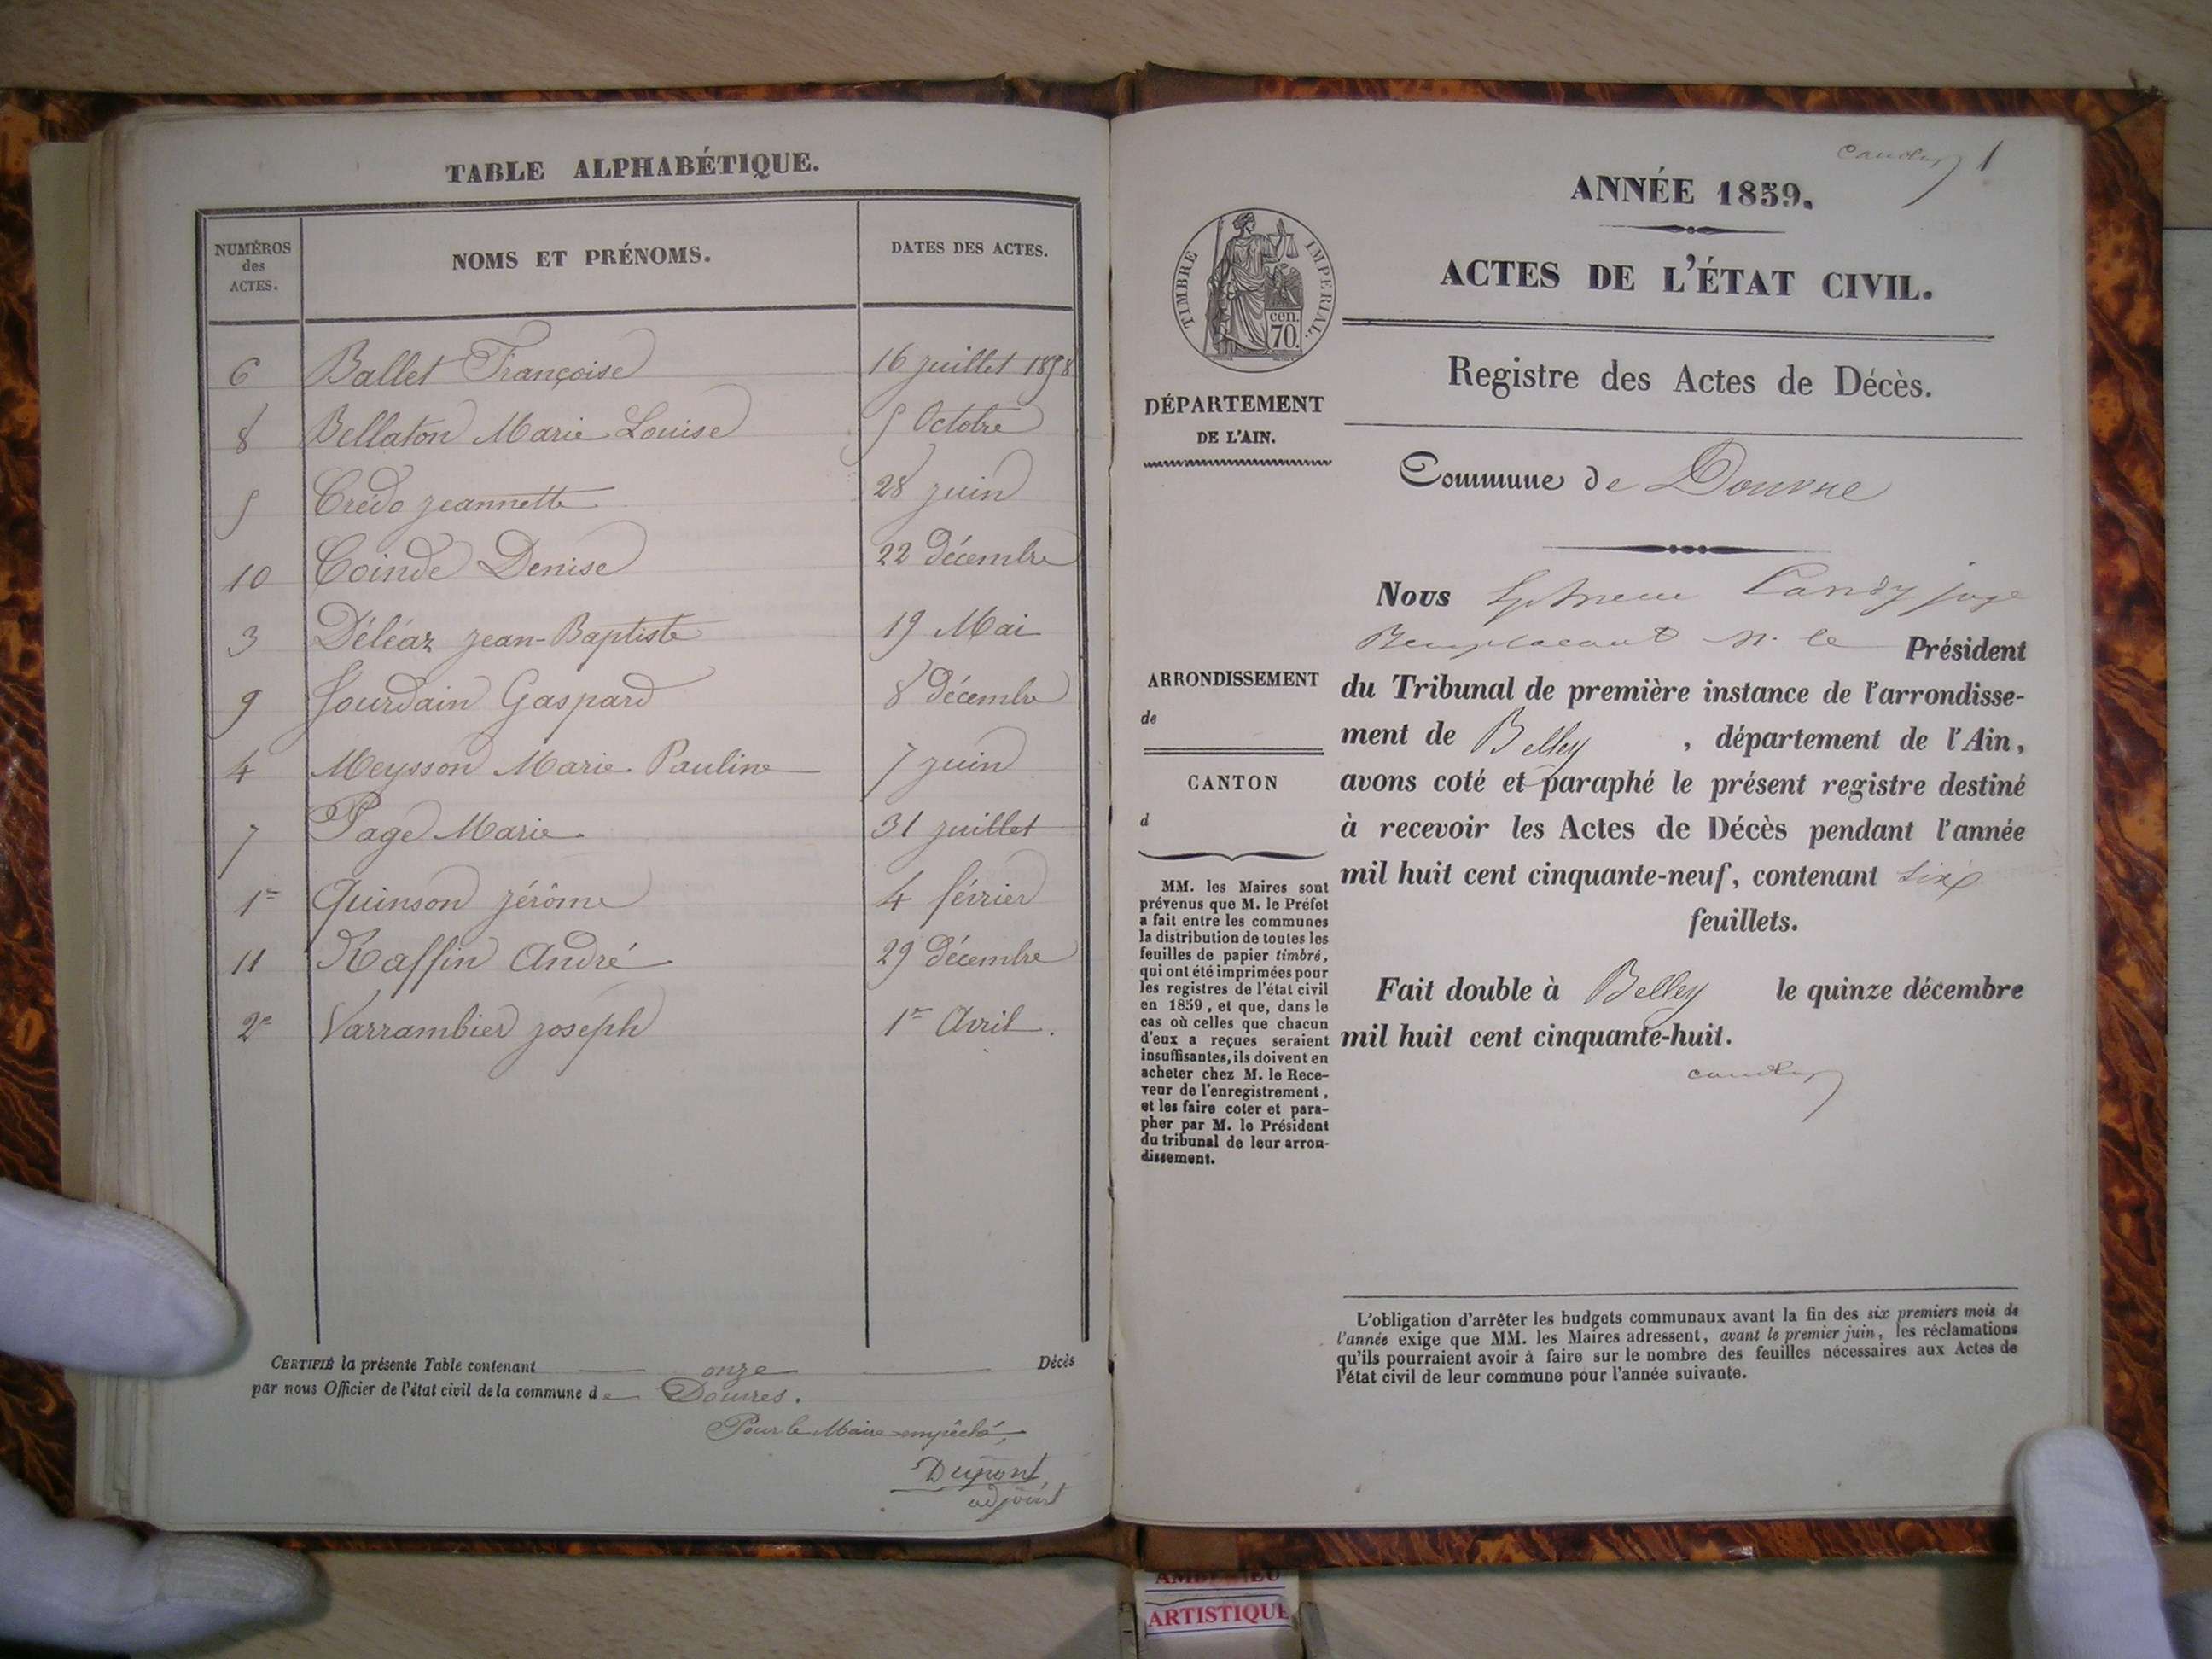 TABLE ALPHABÉTIQUE.
NUMÉROS des ACTES. NOMS ET PRÉNOMS. DATES DES ACTES.
6 Ballet Françoise 16 juillet 1858
8 Bellaton Marie Louise 5 Octobre
5 Crédo jeannette 28 juin
10 Coinde Denise 22 décembre
3 Déléaz jean-Baptiste 19 Mai
9 Jourdain Gaspard 8 décembre
4 Meysson Marie Pauline 7 juin
7 Page Marie 31 juillet
1er Quinson jérôme 4 février
11 Raffin André 29 décembre
2e Varrambier joseph 1er Avril.
CERTIFIÉ la présente Table contenant onze Décès
par nous Officier de l'état civil de la commune de Douvres.
Pour le Maire empêché,
Dupont
adjoint
1
ANNÉE 1859.
ACTES DE L'ÉTAT CIVIL.
TIMBRE IMPERIAL.
cen.
70.
Registre des Actes de Décès.
DÉPARTEMENT
DE L'AIN.
Commune de Douvre
Nous Candy juge
Remplacant M. le Président
ARRONDISSEMENT
de
CANTON
d
du Tribunal de première instance de l'arrondisse-
ment de Belley, département de l'Ain,
avons coté et paraphé le présent registre destiné
à recevoir les Actes de Décès pendant l'année
mil huit cent cinquante-neuf, contenant six
feuillets.
Fait double à Belley le quinze décembre
mil huit cent cinquante-huit.
Candy
MM. les Maires sont
prévenus que M. le Préfet
a fait entre les communes
la distribution de toutes les
feuilles de papier timbré,
qui ont été imprimées pour
les registres de l'état civil
en 1859, et que, dans le
cas où celles que chacun
d'eux a reçues seraient
insuffisantes, ils doivent en
acheter chez M. le Rece-
veur de l'enregistrement,
et les faire coter et para-
pher par M. le Président
du tribunal de leur arron-
dissement.
L'obligation d'arrêter les budgets communaux avant la fin des six premiers mois de
l'année exige que MM. les Maires adressent, avant le premier juin, les réclamations
qu'ils pourraient avoir à faire sur le nombre des feuilles nécessaires aux Actes de
l'état civil de leur commune pour l'année suivante.
ARTISTIQUE